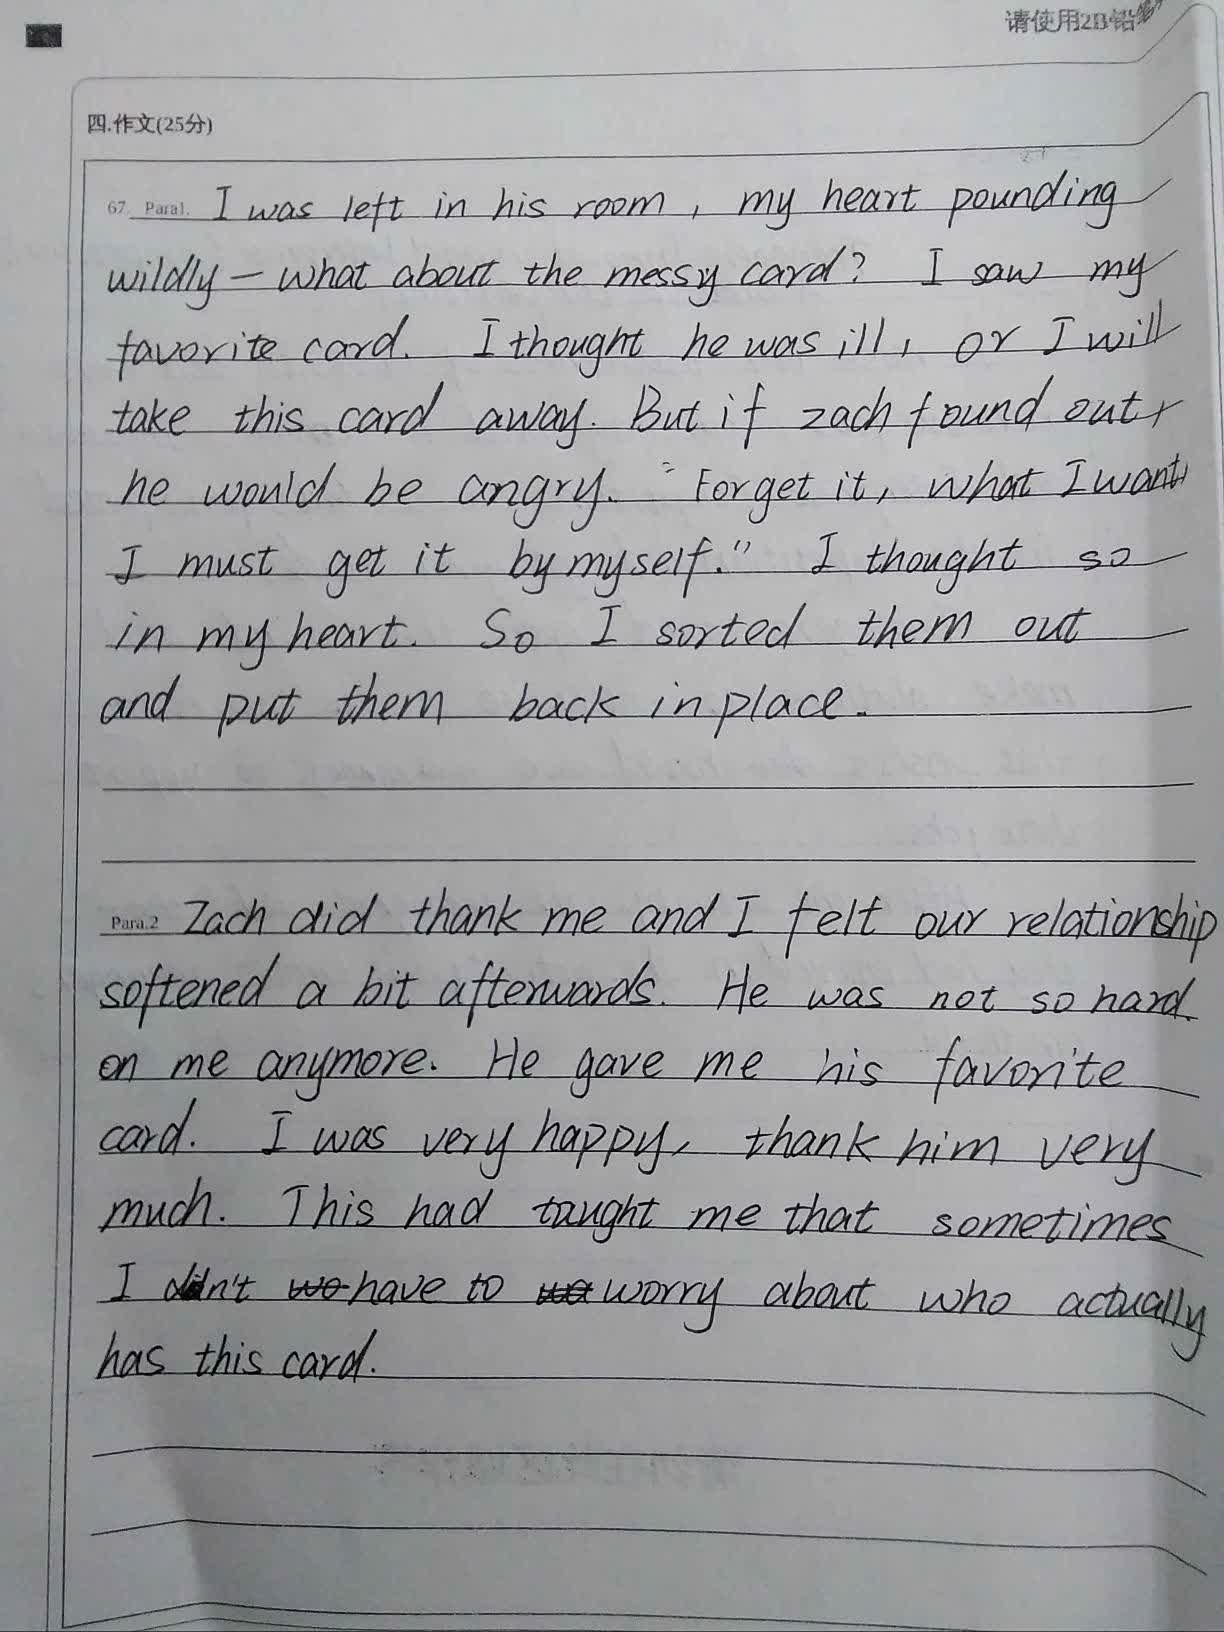 请使用2B铅笔
四.作文(25分)
67. Para1. I was left in his room, my heart pounding
wildly — what about the messy card? I saw my
favorite card. I thought he was ill, or I will
take this card away. But if zach found out,
he would be angry. "Forget it, what I want,
I must get it by myself." I thought so
in my heart. So I sorted them out
and put them back in place.
Para.2 Zach did thank me and I felt our relationship
softened a bit afterwards. He was not so hard
on me anymore. He gave me his favorite
card. I was very happy, thank him very
much. This had taught me that sometimes
I didn't have to worry about who actually
has this card.